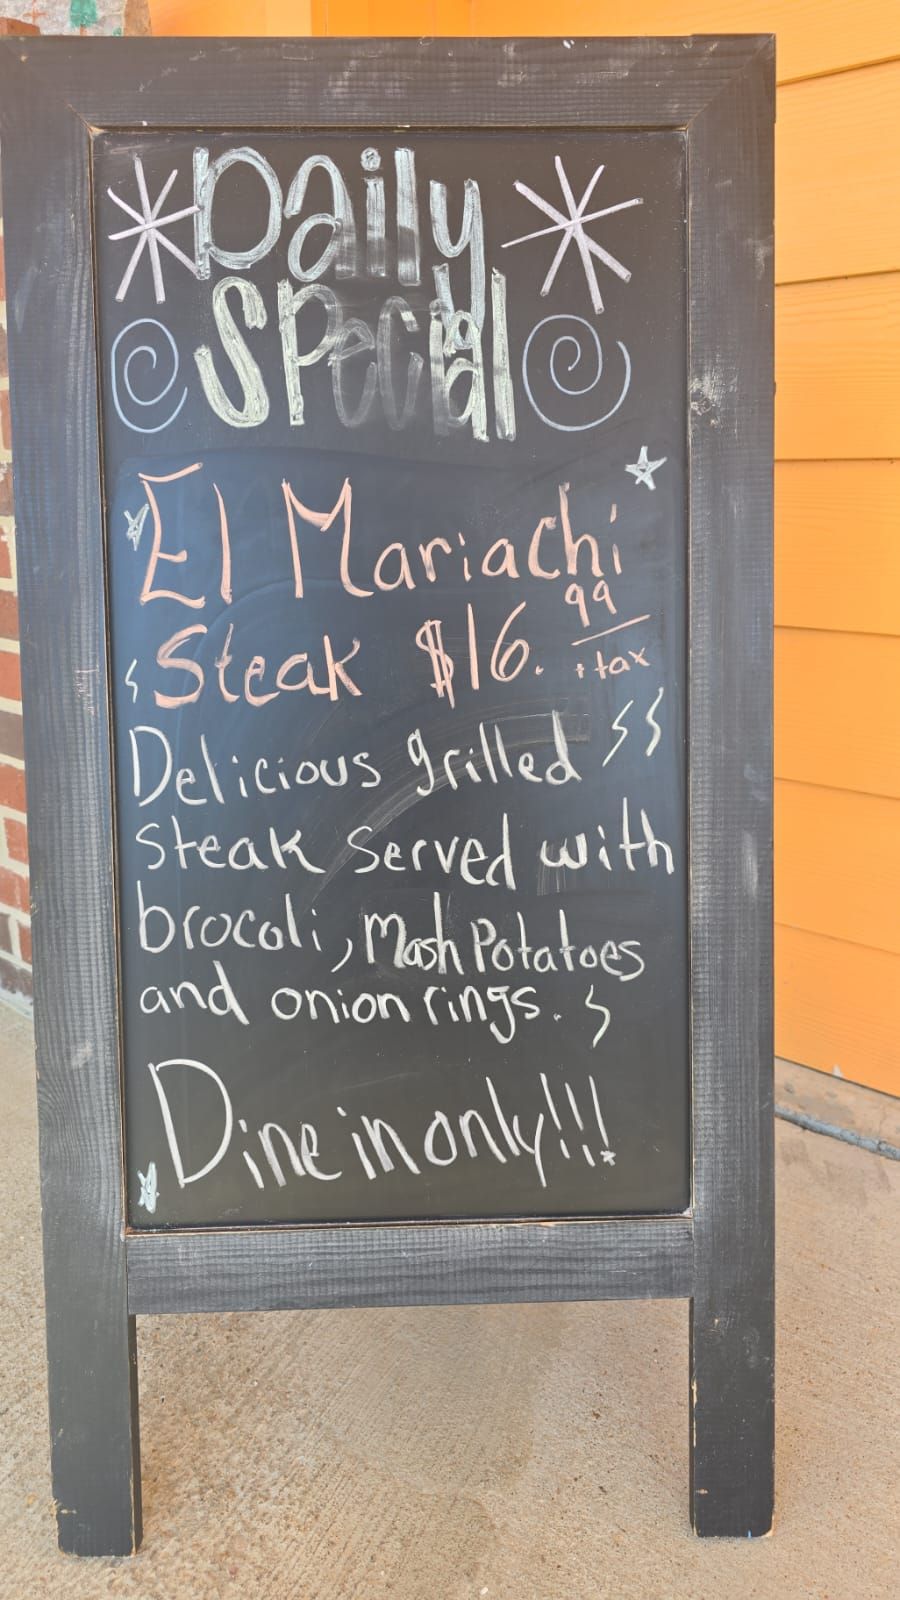 Daily
Special
El Mariachi
Steak $16.99 + tax
Delicious grilled
steak served with
brocoli, Mash Potatoes
and onion rings.
Dine in only!!!